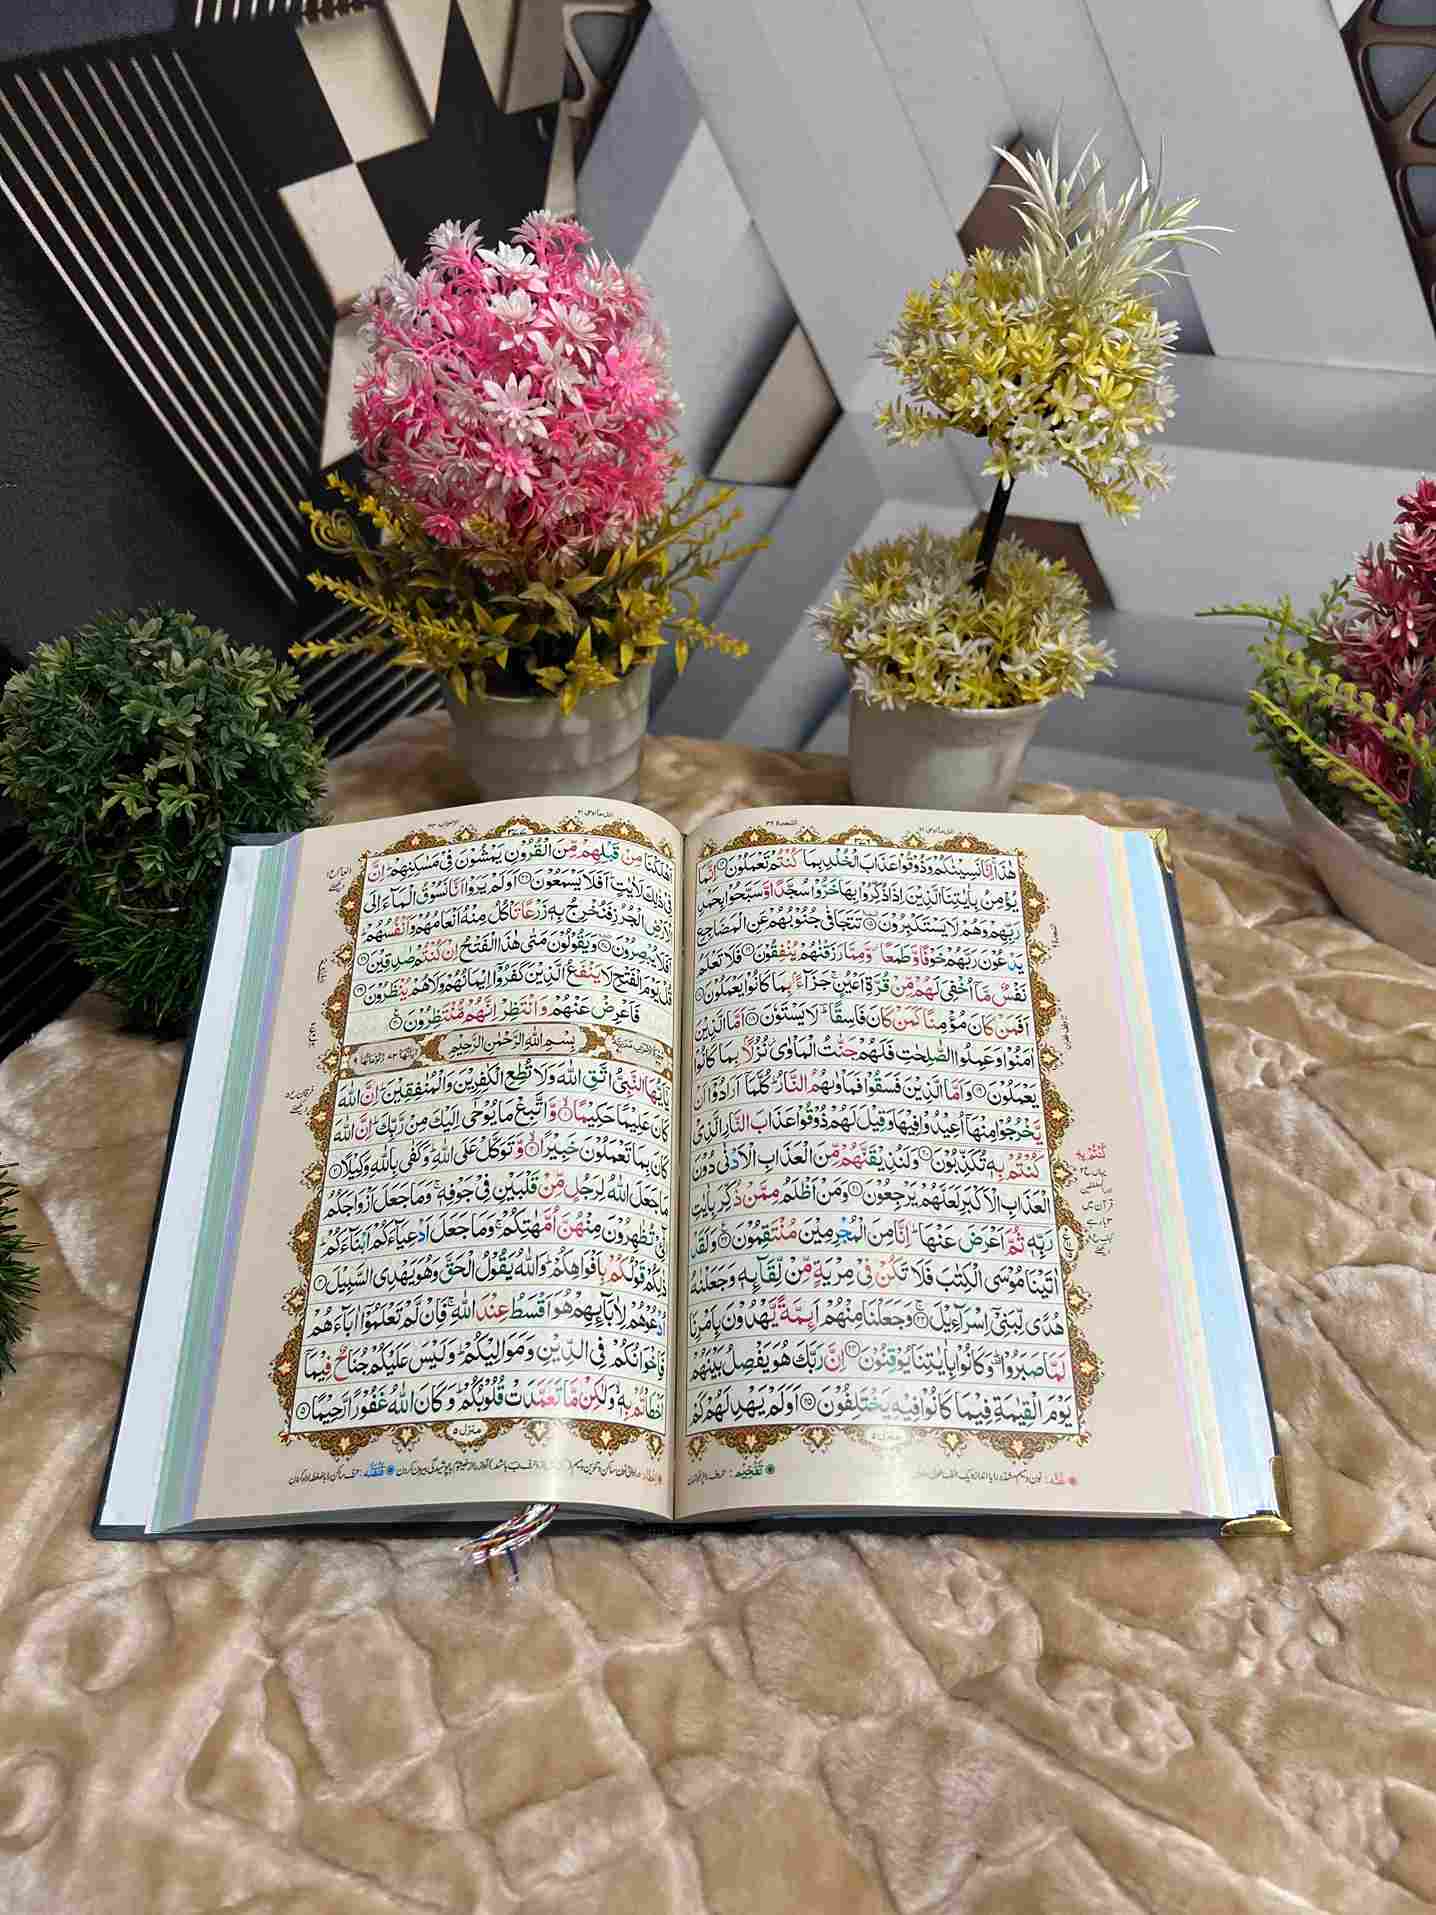 السجدة ٣٢
اتل ما اوحی ٢١
هٰذَا ۚ اِنَّا نَسِيْنٰكُمْ وَذُوْقُوْا عَذَابَ الْخُلْدِ بِمَا كُنْتُمْ تَعْمَلُوْنَ ۝ اِنَّمَا
يُؤْمِنُ بِاٰيٰتِنَا الَّذِيْنَ اِذَا ذُكِّرُوْا بِهَا خَرُّوْا سُجَّدًا وَّسَبَّحُوْا بِحَمْدِ
رَبِّهِمْ وَهُمْ لَا يَسْتَكْبِرُوْنَ ۝١٥ تَتَجَافٰى جُنُوْبُهُمْ عَنِ الْمَضَاجِعِ
يَدْعُوْنَ رَبَّهُمْ خَوْفًا وَّطَمَعًا ۫ وَّمِمَّا رَزَقْنٰهُمْ يُنْفِقُوْنَ ۝ فَلَا تَعْلَمُ
نَفْسٌ مَّاۤ اُخْفِىَ لَهُمْ مِّنْ قُرَّةِ اَعْيُنٍ ۚ جَزَآءًۢ بِمَا كَانُوْا يَعْمَلُوْنَ ۝
اَفَمَنْ كَانَ مُؤْمِنًا كَمَنْ كَانَ فَاسِقًا ؔ لَا يَسْتَوٗنَ ۝ اَمَّا الَّذِيْنَ
اٰمَنُوْا وَعَمِلُوا الصّٰلِحٰتِ فَلَهُمْ جَنّٰتُ الْمَاْوٰى ۫ نُزُلًۢا بِمَا كَانُوْا
يَعْمَلُوْنَ ۝ وَاَمَّا الَّذِيْنَ فَسَقُوْا فَمَاْوٰىهُمُ النَّارُ ؕ كُلَّمَاۤ اَرَادُوْۤا اَنْ
يَّخْرُجُوْا مِنْهَاۤ اُعِيْدُوْا فِيْهَا وَقِيْلَ لَهُمْ ذُوْقُوْا عَذَابَ النَّارِ الَّذِىْ
كُنْتُمْ بِهٖ تُكَذِّبُوْنَ ۝ وَلَنُذِيْقَنَّهُمْ مِّنَ الْعَذَابِ الْاَدْنٰى دُوْنَ
الْعَذَابِ الْاَكْبَرِ لَعَلَّهُمْ يَرْجِعُوْنَ ۝ وَمَنْ اَظْلَمُ مِمَّنْ ذُكِّرَ بِاٰيٰتِ
رَبِّهٖ ثُمَّ اَعْرَضَ عَنْهَا ؕ اِنَّا مِنَ الْمُجْرِمِيْنَ مُنْتَقِمُوْنَ ۝٢٢ وَلَقَدْ
اٰتَيْنَا مُوْسَى الْكِتٰبَ فَلَا تَكُنْ فِىْ مِرْيَةٍ مِّنْ لِّقَآئِهٖ وَجَعَلْنٰهُ
هُدًى لِّبَنِىْۤ اِسْرَآءِيْلَ ۝٢٣ وَجَعَلْنَا مِنْهُمْ اَئِمَّةً يَّهْدُوْنَ بِاَمْرِنَا
لَمَّا صَبَرُوْا ؕ وَكَانُوْا بِاٰيٰتِنَا يُوْقِنُوْنَ ۝٢٤ اِنَّ رَبَّكَ هُوَ يَفْصِلُ بَيْنَهُمْ
يَوْمَ الْقِيٰمَةِ فِيْمَا كَانُوْا فِيْهِ يَخْتَلِفُوْنَ ۝٢٥ اَوَلَمْ يَهْدِ لَهُمْ كَمْ
منزل ٥
اتل ما اوحی ٢١
الاحزاب ٣٣
اَهْلَكْنَا مِنْ قَبْلِهِمْ مِّنَ الْقُرُوْنِ يَمْشُوْنَ فِىْ مَسٰكِنِهِمْ ؕ اِنَّ
فِىْ ذٰلِكَ لَاٰيٰتٍ ؕ اَفَلَا يَسْمَعُوْنَ ۝ اَوَلَمْ يَرَوْا اَنَّا نَسُوْقُ الْمَآءَ اِلَى
الْاَرْضِ الْجُرُزِ فَنُخْرِجُ بِهٖ زَرْعًا تَاْكُلُ مِنْهُ اَنْعَامُهُمْ وَاَنْفُسُهُمْ
اَفَلَا يُبْصِرُوْنَ ۝ وَيَقُوْلُوْنَ مَتٰى هٰذَا الْفَتْحُ اِنْ كُنْتُمْ صٰدِقِيْنَ ۝
قُلْ يَوْمَ الْفَتْحِ لَا يَنْفَعُ الَّذِيْنَ كَفَرُوْۤا اِيْمَانُهُمْ وَلَا هُمْ يُنْظَرُوْنَ ۝
فَاَعْرِضْ عَنْهُمْ وَانْتَظِرْ اِنَّهُمْ مُّنْتَظِرُوْنَ ۝
بِسْمِ اللّٰهِ الرَّحْمٰنِ الرَّحِيْمِ
يٰۤاَيُّهَا النَّبِىُّ اتَّقِ اللّٰهَ وَلَا تُطِعِ الْكٰفِرِيْنَ وَالْمُنٰفِقِيْنَ ؕ اِنَّ اللّٰهَ
كَانَ عَلِيْمًا حَكِيْمًا ۝١ وَّاتَّبِعْ مَا يُوْحٰۤى اِلَيْكَ مِنْ رَّبِّكَ ؕ اِنَّ اللّٰهَ
كَانَ بِمَا تَعْمَلُوْنَ خَبِيْرًا ۝ وَّتَوَكَّلْ عَلَى اللّٰهِ ؕ وَكَفٰى بِاللّٰهِ وَكِيْلًا ۝
مَا جَعَلَ اللّٰهُ لِرَجُلٍ مِّنْ قَلْبَيْنِ فِىْ جَوْفِهٖ ۚ وَمَا جَعَلَ اَزْوَاجَكُمُ
الّٰٓئِىْ تُظٰهِرُوْنَ مِنْهُنَّ اُمَّهٰتِكُمْ ۚ وَمَا جَعَلَ اَدْعِيَآءَكُمْ اَبْنَآءَكُمْ ؕ
ذٰلِكُمْ قَوْلُكُمْ بِاَفْوَاهِكُمْ ؕ وَاللّٰهُ يَقُوْلُ الْحَقَّ وَهُوَ يَهْدِى السَّبِيْلَ ۝
اُدْعُوْهُمْ لِاٰبَآئِهِمْ هُوَ اَقْسَطُ عِنْدَ اللّٰهِ ۚ فَاِنْ لَّمْ تَعْلَمُوْۤا اٰبَآءَهُمْ
فَاِخْوَانُكُمْ فِى الدِّيْنِ وَمَوَالِيْكُمْ ؕ وَلَيْسَ عَلَيْكُمْ جُنَاحٌ فِيْمَاۤ
اَخْطَاْتُمْ بِهٖ ۙ وَلٰكِنْ مَّا تَعَمَّدَتْ قُلُوْبُكُمْ ؕ وَكَانَ اللّٰهُ غَفُوْرًا رَّحِيْمًا ۝٥
منزل ٥